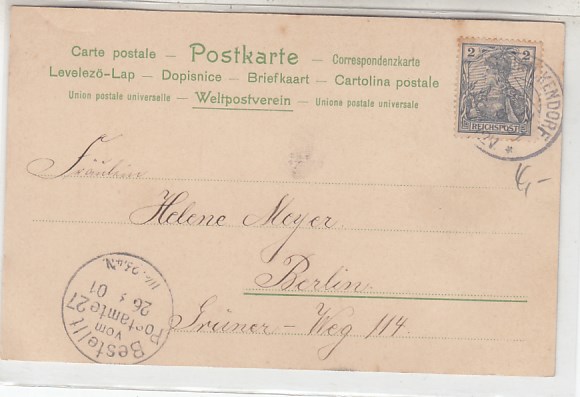 Carte postale — Postkarte — Correspondenzkarte
Levelezö-Lap — Dopisnice — Briefkaart — Cartolina postale
Union postale universelle — Weltpostverein — Unione postale universale
2 2
REICHSPOST
KENDORF
*
4,-
Fräulein
Helene Meyer.
Berlin
Grüner - Weg 114.
Bestellt
vom
Postamte 27
26 01
N.